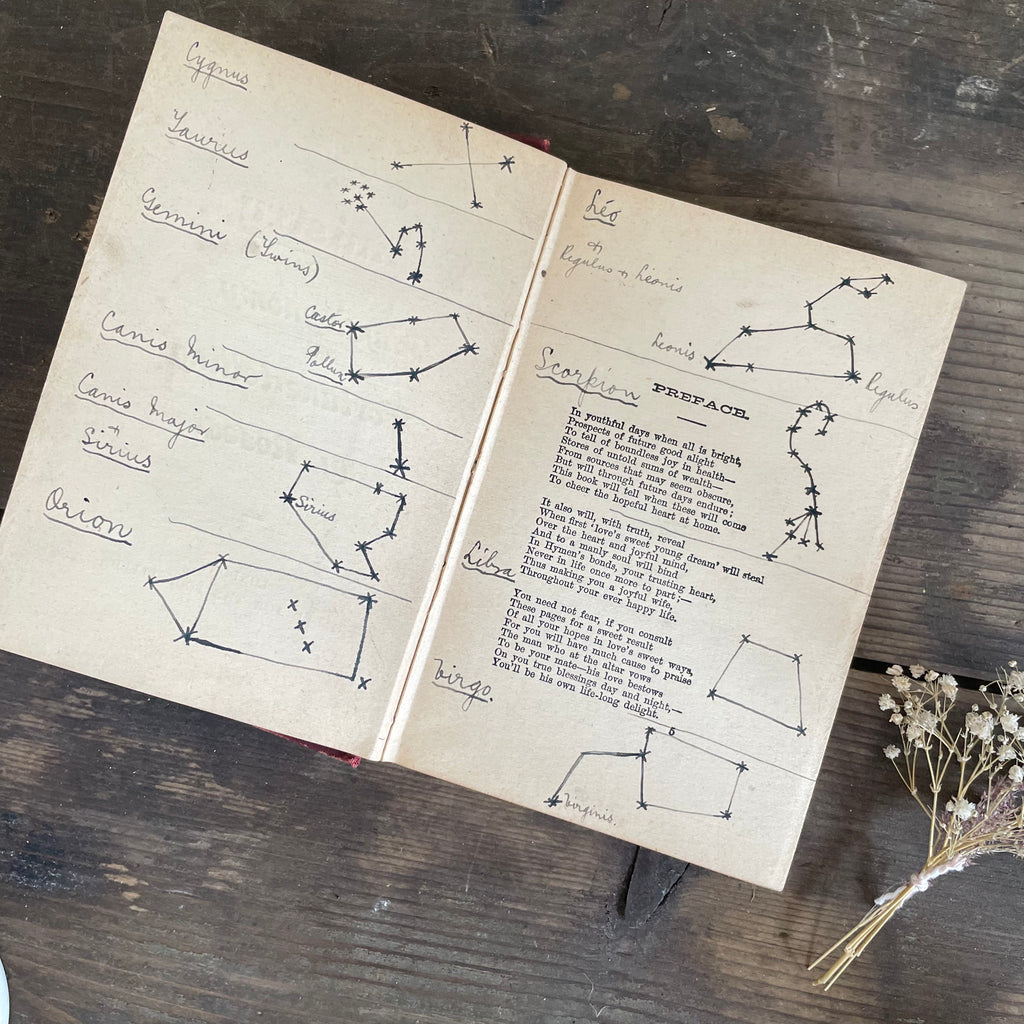 Cygnus
Taurus
Gemini (Twins)
Castor
Pollux
Canis Minor
Canis Major
+
Sirius
Sirius
Orion
Léo
+
Regulus + Léonis
Leonis
Regulus
Scorpion
PREFACE.
In youthful days when all is bright,
Prospects of future good alight
To tell of boundless joy in health—
Stores of untold sums of wealth—
From sources that may seem obscure,
But will through future days endure;
This book will tell when these will come
To cheer the hopeful heart at home.
It also will, with truth, reveal
When first 'love's sweet young dream' will steal
Over the heart and joyful mind,
And to a manly soul will bind
In Hymen's bonds, your trusting heart,
Never in life once more to part;—
Thus making you a joyful wife,
Throughout your ever happy life.
Libra
You need not fear, if you consult
These pages for a sweet result
Of all your hopes in love's sweet ways,
For you will have much cause to praise
The man who at the altar vows
To be your mate—his love bestows
On you true blessings day and night,—
You'll be his own life-long delight.
Virgo.
Virginis.